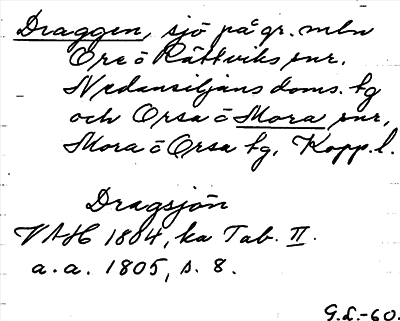 Draggen, sjö på gr. mln
Ore o Rättviks snr.
Nedansiljans doms. tg
och Orsa o Mora snr,
Mora o Orsa tg, Kopp.l.
Dragsjön
VAH 1804, ka Tab. II.
a.a. 1805, s. 8.
G.L.-60.